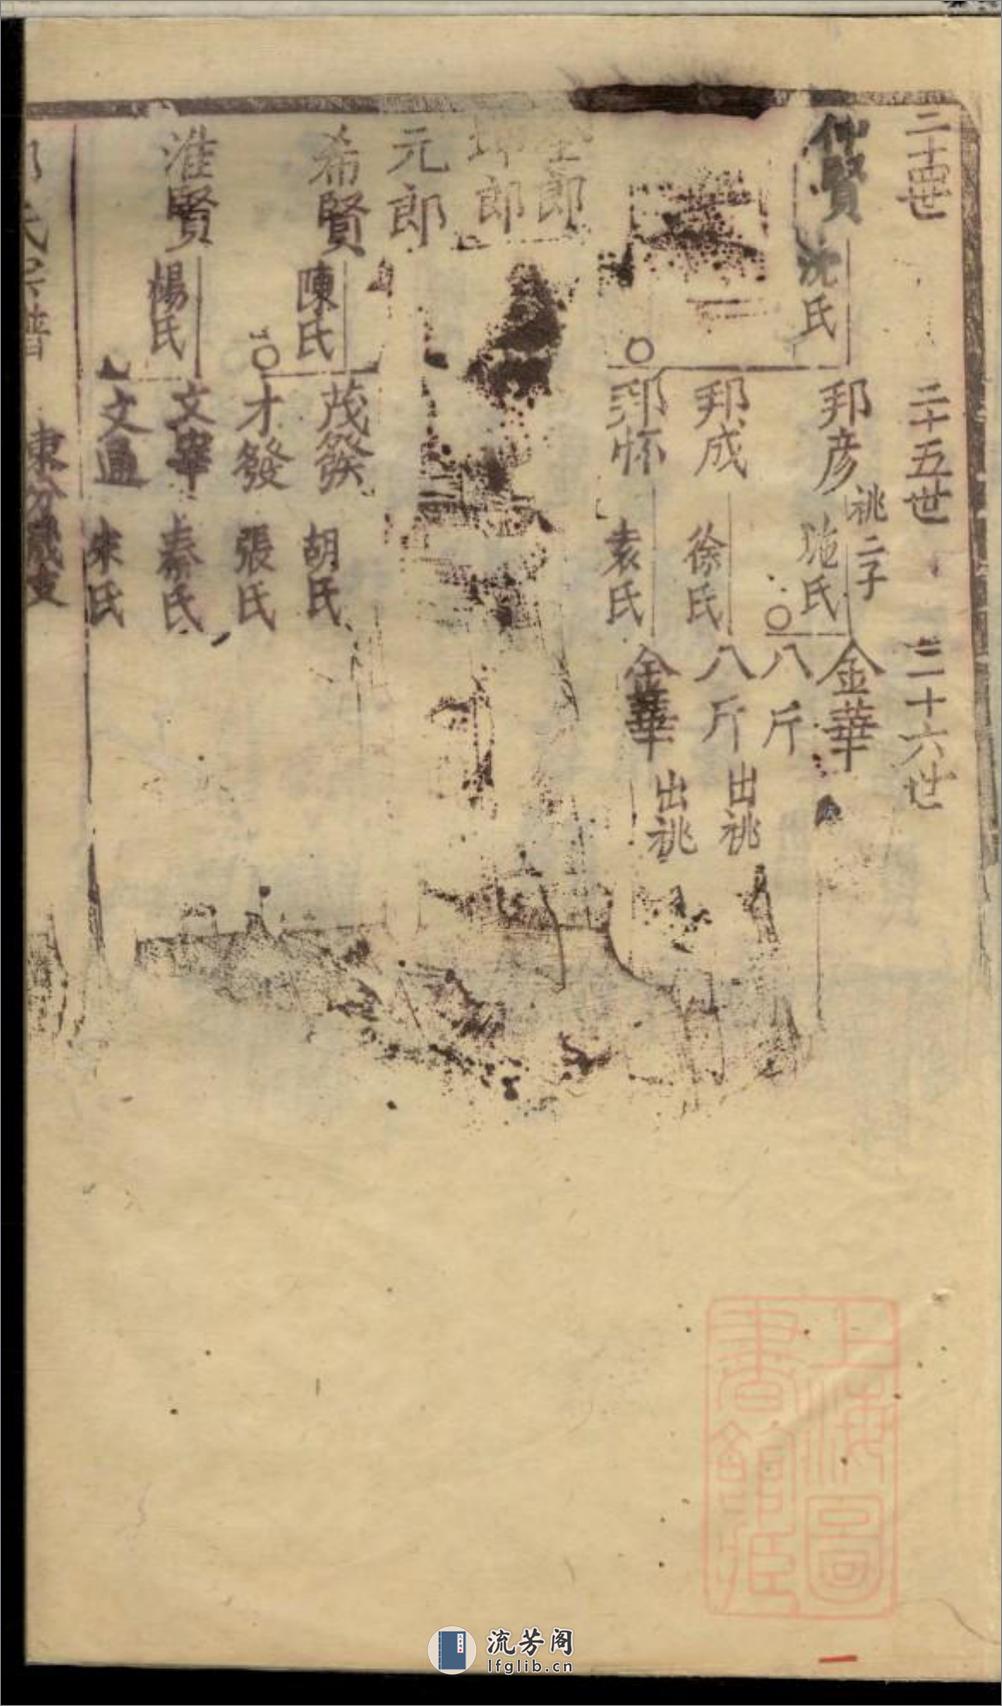 二十四世
二十五世
二十六世
賢 沈氏
邦彦 祧二子 施氏
金華
八斤
邦成 徐氏
八斤 出祧
邦怀 袁氏
金華 出祧
郎
郎
元郎
希賢 陳氏
茂發 胡氏
才發 張氏
淮賢 楊氏
文華 秦氏
文通 宋氏
氏宗譜 東分 支
上海圖
書館藏
流芳阁
lfglib.cn